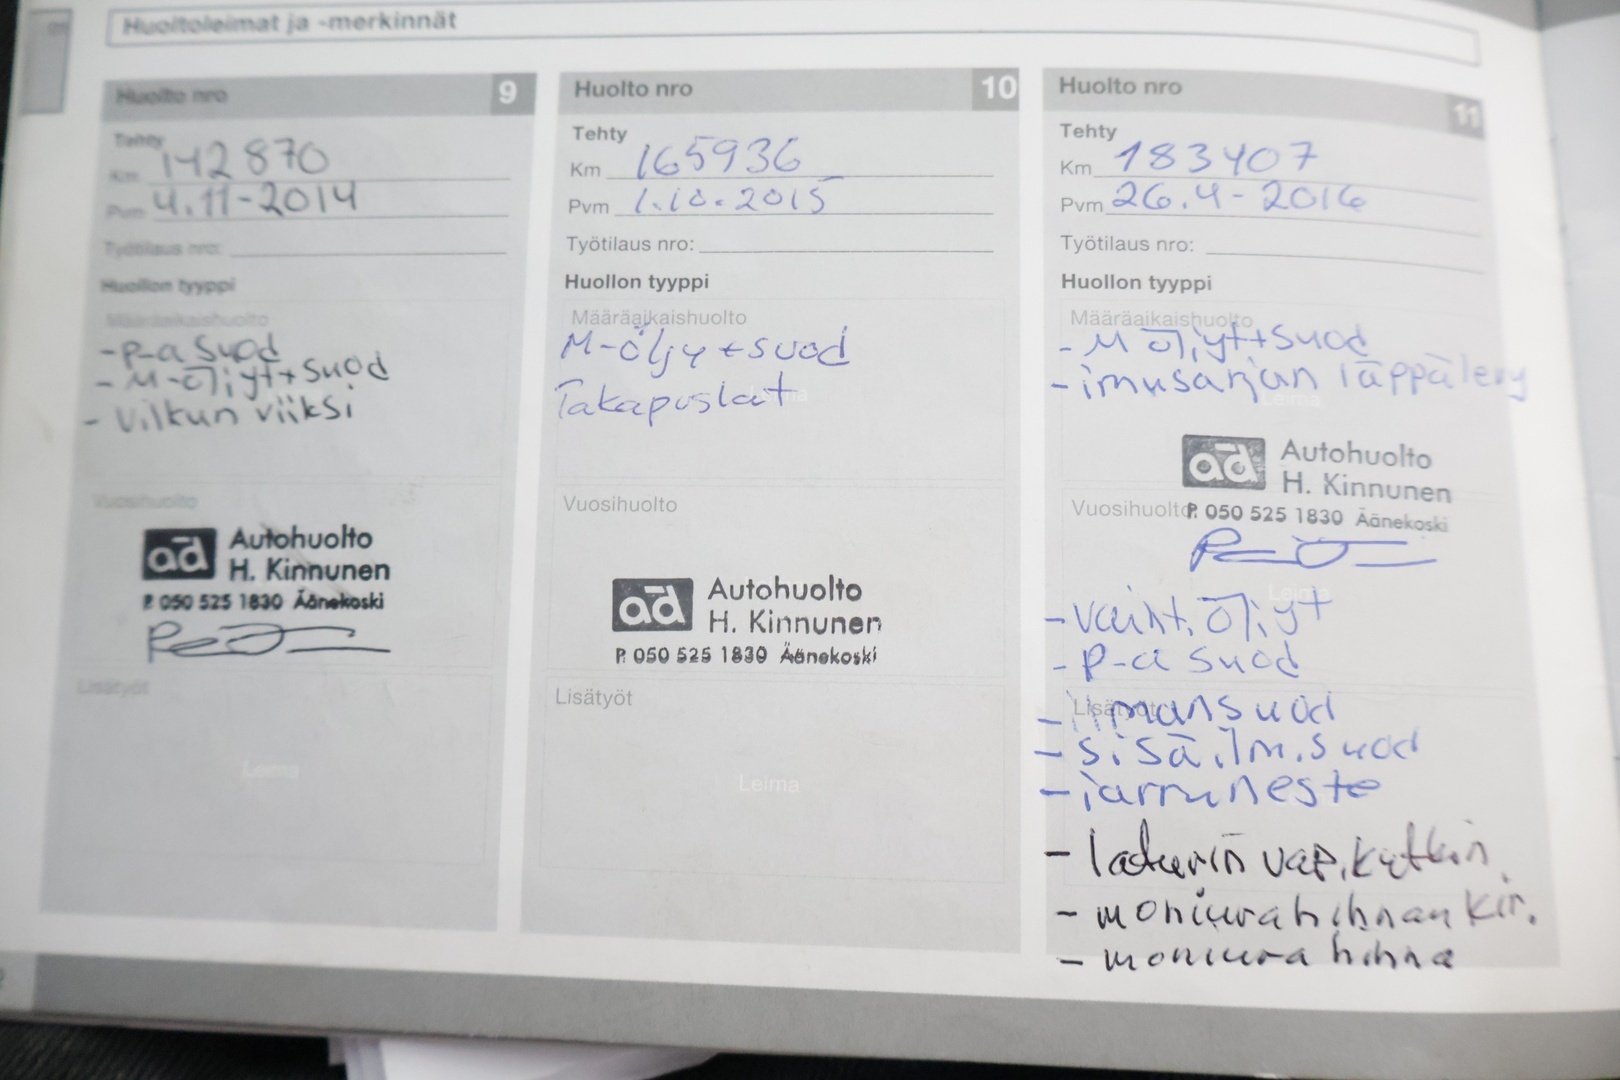 Huoltoleimat ja -merkinnät
Huolto nro 9
Tehty
Km 142870
Pvm 4.11-2014
Työtilaus nro:
Huollon tyyppi
Määräaikaishuolto
-p-a suod
- M-öljyt+suod
- Vilkun viiksi
Vuosihuolto
ad Autohuolto
H. Kinnunen
P. 050 525 1830 Äänekoski
Lisätyöt
Leima
Huolto nro 10
Tehty
Km 165936
Pvm 1.10.2015
Työtilaus nro:
Huollon tyyppi
Määräaikaishuolto
M-öljy+suod
Takapuslat
Leima
Vuosihuolto
ad Autohuolto
H. Kinnunen
P. 050 525 1830 Äänekoski
Lisätyöt
Leima
Huolto nro 11
Tehty
Km 183407
Pvm 26.4-2016
Työtilaus nro:
Huollon tyyppi
Määräaikaishuolto
- M öljyt+suod
- imusarjan läppälevy
Leima
ad Autohuolto
H. Kinnunen
Vuosihuolto P. 050 525 1830 Äänekoski
Leima
- vaiht. öljyt
- p-a suod
Lisätyöt
- ilmansuod
- sisäilm.suod
- jarruneste
- laturin vap.kytkin
- moniurahihnan kir.
- moniura hihna